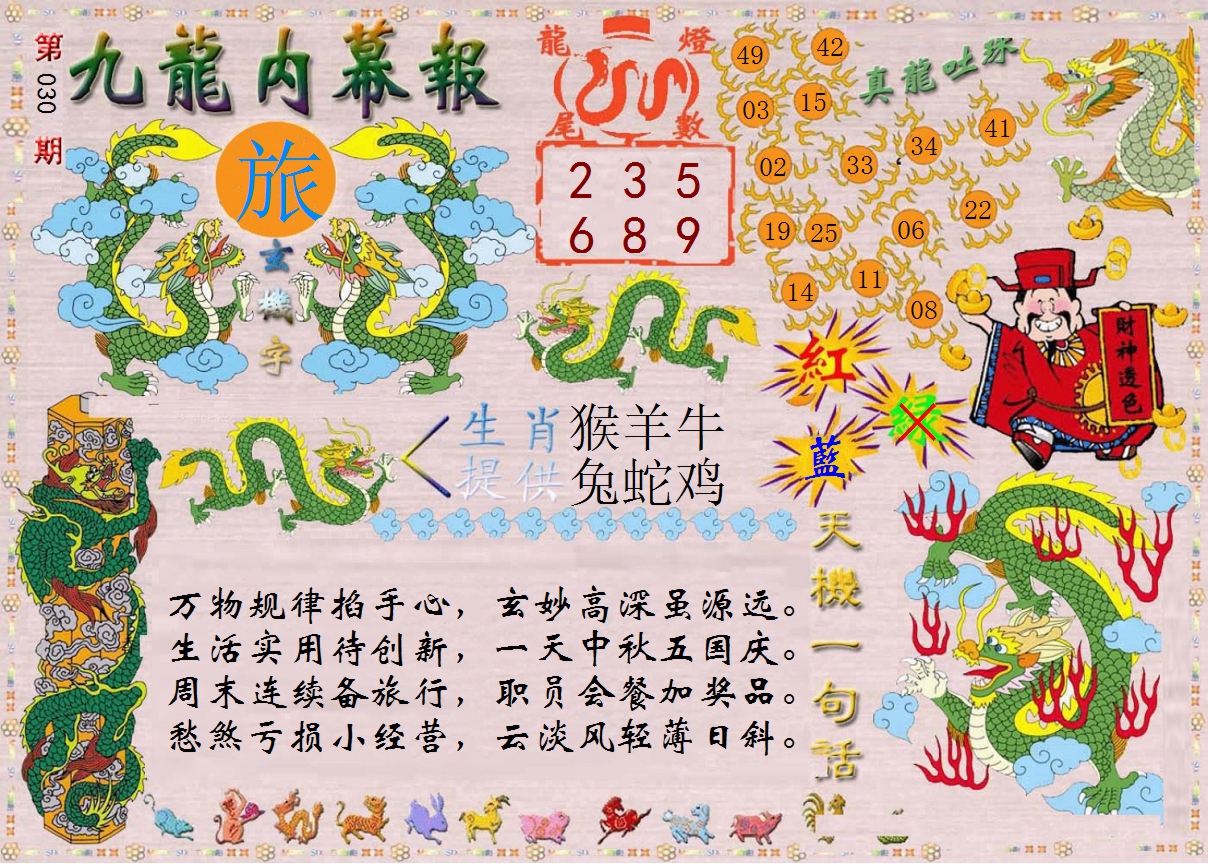 第030期
九龍内幕報
旅
玄機字
龍燈尾數
2 3 5
6 8 9
真龍吐珠
49 42
03 15
02 33 34 41
19 25 06 22
14 11 08
財神透色
紅
绿
藍
生肖提供
猴羊牛
兔蛇鸡
天機一句話
万物规律掐手心，玄妙高深虽源远。
生活实用待创新，一天中秋五国庆。
周末连续备旅行，职员会餐加奖品。
愁煞亏损小经营，云淡风轻薄日斜。